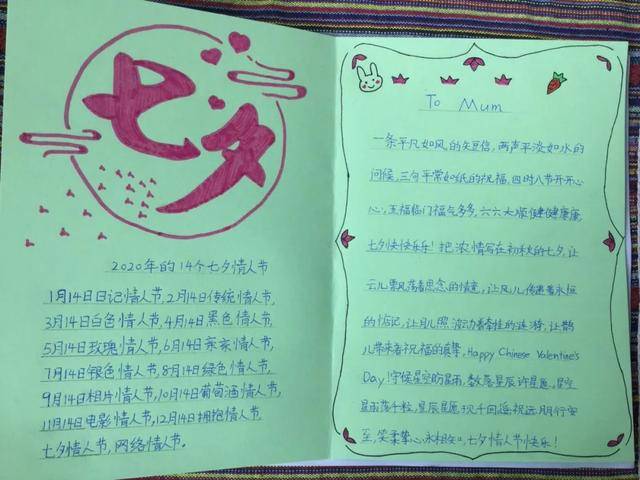 七夕
2020年的14个七夕情人节
1月14日日记情人节,2月14日传统情人节,
3月14日白色情人节,4月14日黑色情人节,
5月14日玫瑰情人节,6月14日亲亲情人节,
7月14日银色情人节,8月14日绿色情人节,
9月14日相片情人节,10月14日葡萄酒情人节,
11月14日电影情人节,12月14日拥抱情人节,
七夕情人节,网络情人节。
To Mum
一条平凡如风的短信,两声平淡如水的
问候,三句平常如纸的祝福,四时八节开开心
心,五福临门福气多多,六六大顺健健康康
七夕快快乐乐!把浓情写在初秋的七夕,让
云儿乘风荡着思念的情意,让风儿传递着永恒
的惦记,让月儿照 波动着牵挂的涟漪,让鹊
儿带来着祝福的真挚,Happy Chinese Valentine's
Day!守候星空盼星雨,数落星辰许星愿,星空
星雨落千粒,星辰星愿现千回,遥祝远朋行安
至,笑柔挚心永相，七夕情人节快乐!